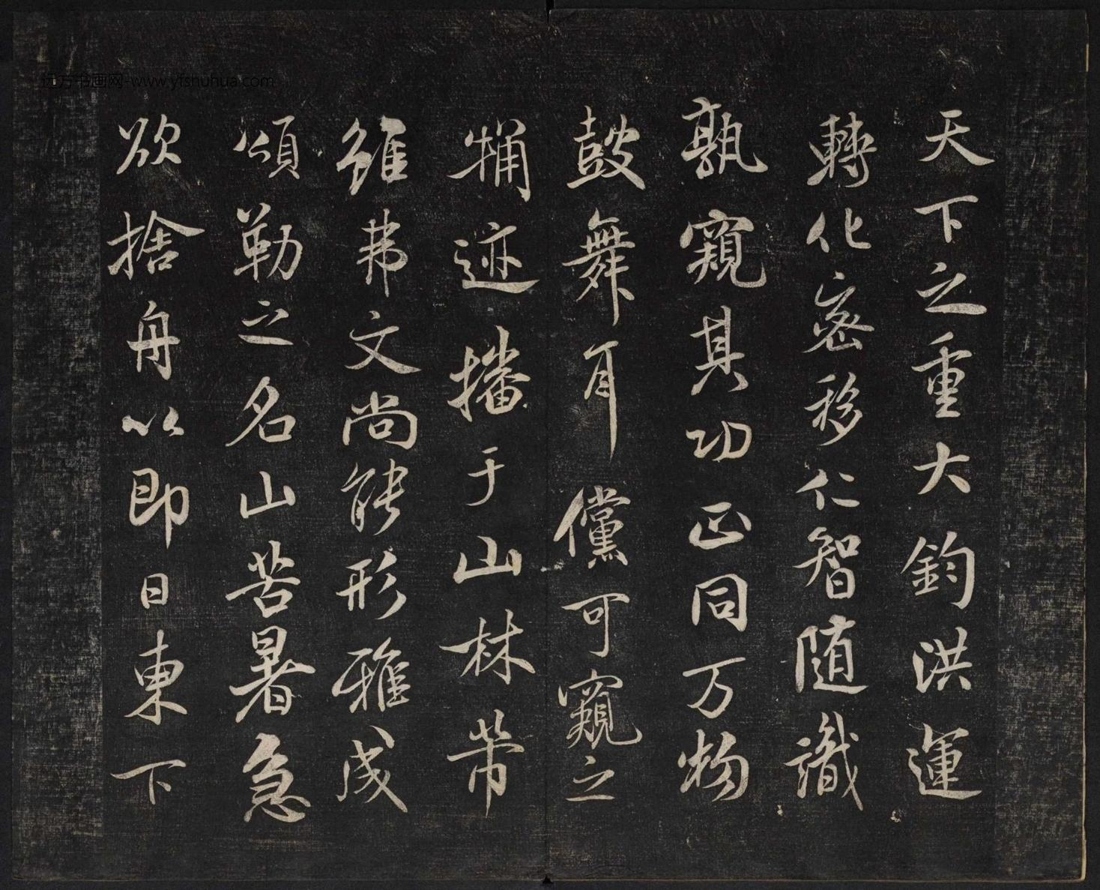 远方书画网-www.yfshuhua.com
天下之重大鈞洪運
轉化密移仁智隨識
孰窺其功正同万物
皷舞耳儻可窺之
迹播于山林芾
雖弗文尚能形雅成
頌勒之名山苦暑急
欲捨舟以即日東下